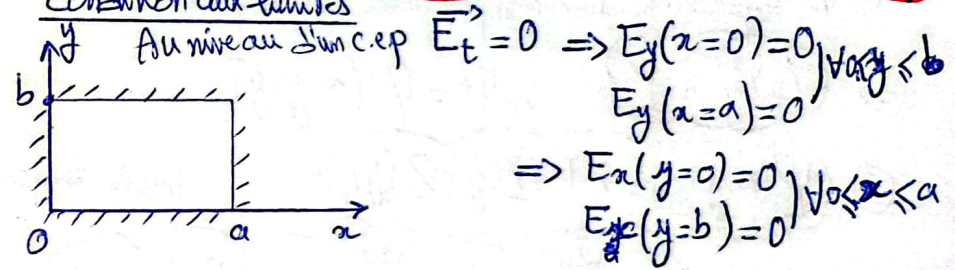 Condition aux limites
Au niveau d'un c.e.p $\vec{E_t} = 0$ ⇒ $E_y(x=0)=0$ ) ∀ 0≤y≤b
$E_y(x=a)=0$
⇒ $E_x(y=0)=0$ ) ∀ 0≤x≤a
$E_x(y=b)=0$
y
b
0
a
x